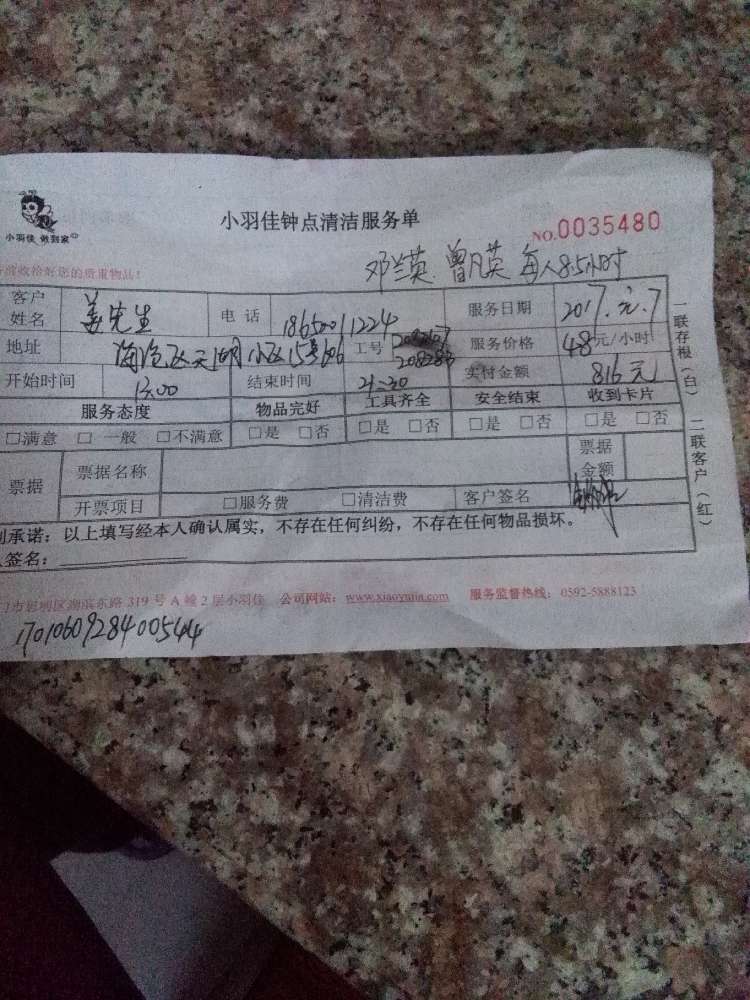 小羽佳 做到家
小羽佳钟点清洁服务单
NO.0035480
收拾好您的贵重物品！
邓兰英 曾凡英 每人8.5小时
客户姓名 姜先生 电话 18650011224 服务日期 2017.元.7
地址 海沧区天湖小区15号606 工号 服务价格 48元/小时
开始时间 13:00 结束时间 21:30 实付金额 816元
服务态度 物品完好 工具齐全 安全结束 收到卡片
□满意 □一般 □不满意 □是 □否 □是 □否 □是 □否 □是 □否
票据 票据名称 票据金额
开票项目 □服务费 □清洁费 客户签名
承诺：以上填写经本人确认属实，不存在任何纠纷，不存在任何物品损坏。
签名：
一联存根（白） 二联客户（红）
门市思明区湖滨东路 319 号 A 幢 2 层小羽佳 公司网站：www.xiaoyujia.com 服务监督热线：0592-5888123
1701060928400544